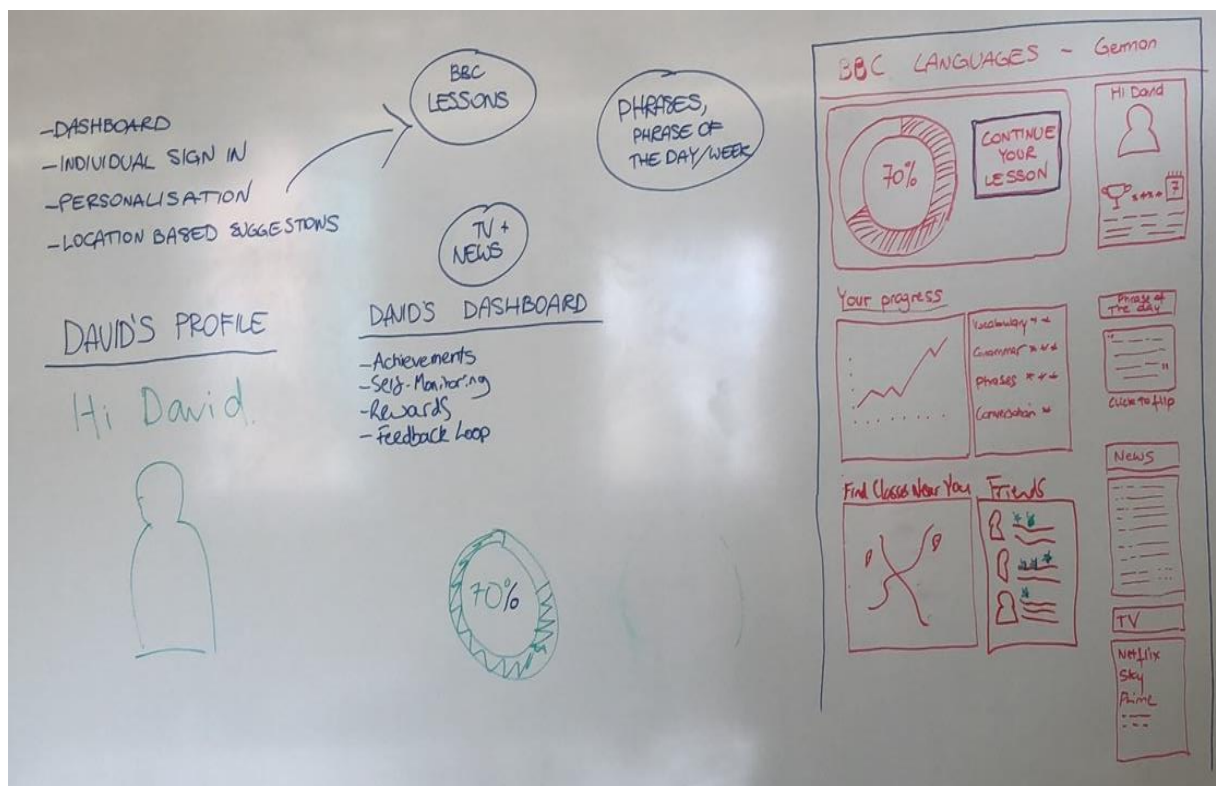 -DASHBOARD
-INDIVIDUAL SIGN IN
-PERSONALISATION
-LOCATION BASED SUGGESTIONS
BBC
LESSONS
PHRASES,
PHRASE OF
THE DAY/WEEK
TV +
NEWS
DAVID'S PROFILE
Hi David.
DAVID'S DASHBOARD
-Achievements
-Self-Monitoring
-Rewards
-Feedback Loop
70%
BBC LANGUAGES - German
70%
CONTINUE
YOUR
LESSON
Hi David
7
Your progress
Vocabulary
Grammar
Phrases
Conversation
Phrase of
The day
Click to flip
Find Classes Near You
Friends
News
TV
Netflix
Sky
Prime